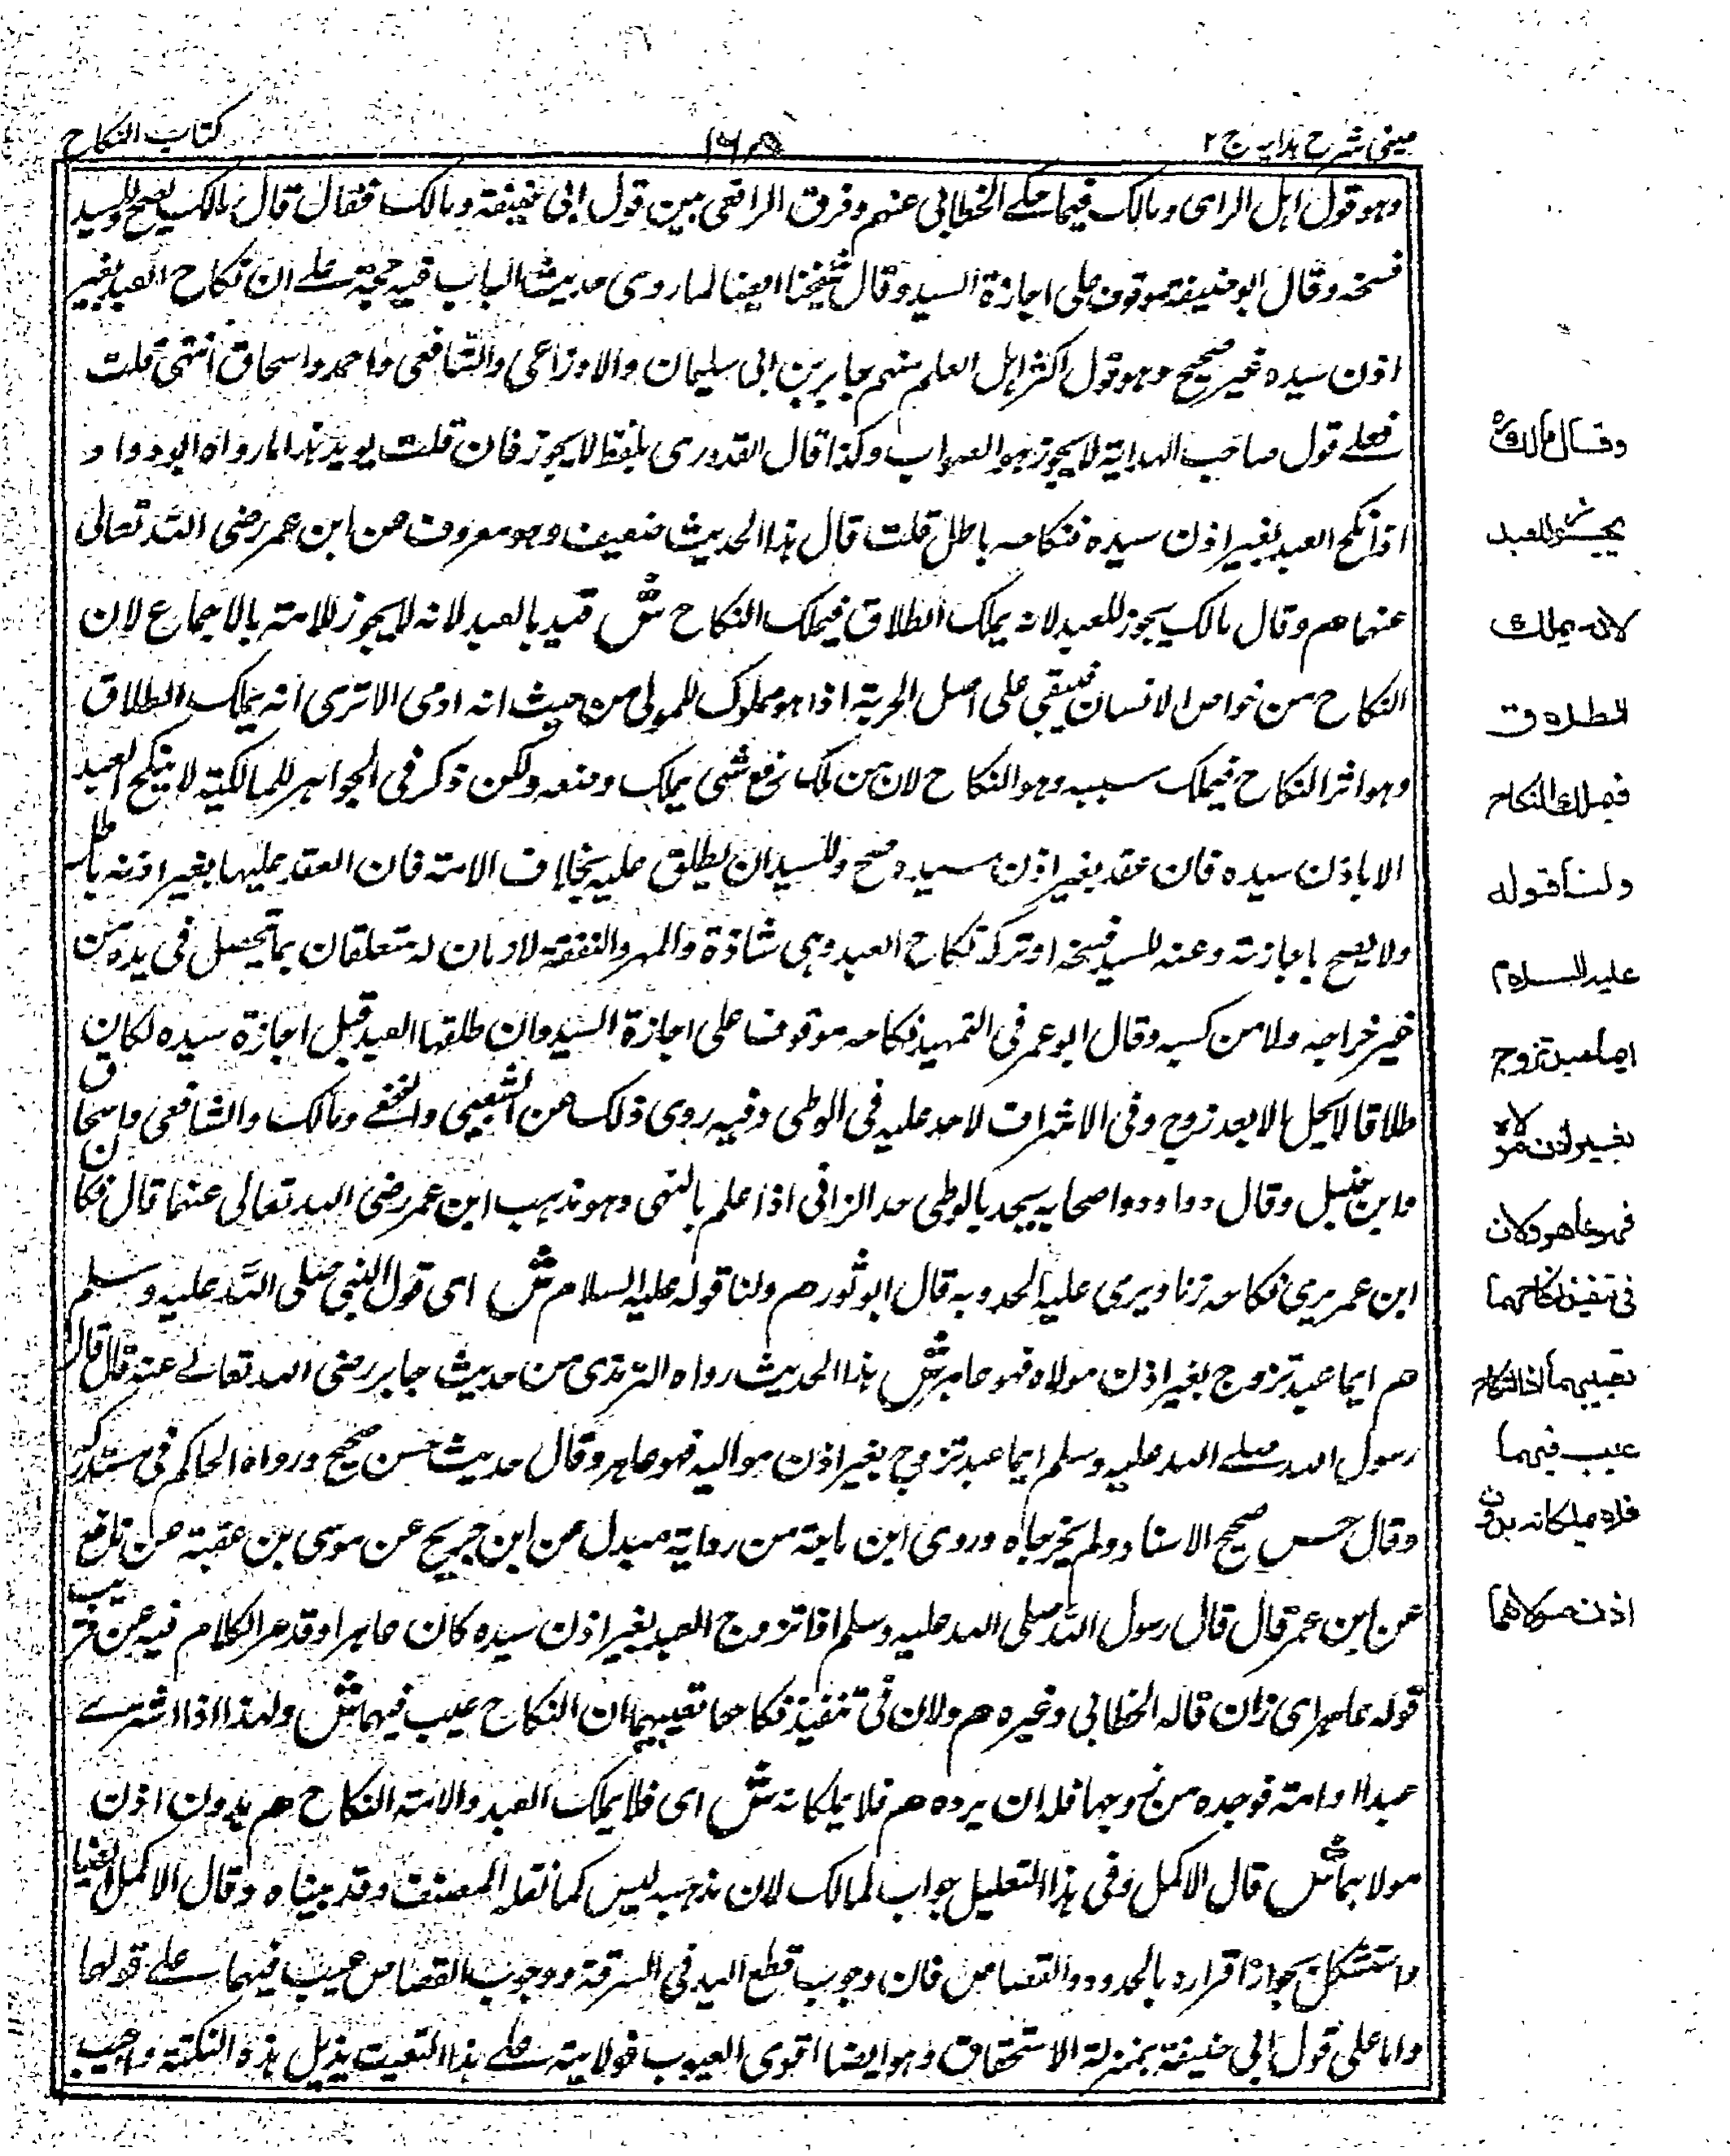 عینی شرح ہدایہ ج ٢
١٦٨
کتاب النکاح
وہو قول اہل الرای ومالک فیما حکے الخطابی عنہم وفرق الرافعی بین قول ابی حنیفۃ ومالک فقال قال مالک یصح وللسید
فسخہ وقال ابو حنیفۃ موقوف علی اجازۃ السید وقال شیخنا ایضا لما روی حدیث الباب فیہ حجۃ علے ان نکاح العبد بغیر
اذن سیدہ غیر صحیح وہو قول اکثر اہل العلم منہم جابر بن ابی سلیمان والاوزاعی والشافعی واحمد واسحاق انتہی قلت
فعلے قول صاحب الہدایۃ لا یجوز ہو الصواب وکذا قال القدوری بلفظ لا یجوز فان قلت یوید ہذا ما رواہ ابو داود
اذا نکح العبد بغیر اذن سیدہ فنکاحہ باطل قلت قال ہذا الحدیث ضعیف وہو معروف من ابن عمر رضی اللہ تعالی
عنہما ھم وقال مالک یجوز للعبد لانہ یملک الطلاق فیملک النکاح ش قید بالعبد لانہ لا یجوز للامۃ بالاجماع لان
النکاح من خواص الانسان فیبقی علی اصل الحریۃ اذا ہو مملوک للمولی من حیث انہ ادمی الا تری انہ یملک الطلاق
وہو اثر النکاح فیملک سببہ وہو النکاح لان من ملک رفع شی یملک وضعہ ولکن ذکر فی الجواہر للمالکیۃ لا ینکح العبد
الا باذن سیدہ فان عقد بغیر اذن سیدہ صح وللسید ان یطلق علیہ بخلاف الامۃ فان العقد علیہا بغیر اذنہ باطل
ولا یصح باجازتہ وعنہ للسید فسخہ او ترکہ نکاح العبد وہی شاذۃ والمہر والنفقۃ لازمان لہ متعلقان بما یحصل فی یدہ من
غیر خراجہ ولا من کسبہ وقال ابو عمر فی التمہید نکاحہ موقوف علی اجازۃ السید وان طلقہا العبد قبل اجازۃ سیدہ لکان
طلاقا لا یحل الا بعد زوج وفی الاشراف لا حد علیہ فی الوطی وفیہ روی ذلک عن الشعبی والنخعے ومالک والشافعی واسحاق
وابن حنبل وقال داود واصحابہ یحد بالوطی حد الزانی اذا علم بالنہی وہو مذہب ابن عمر رضی اللہ تعالی عنہما قال کان
ابن عمر یری نکاحہ زنا ویری علیہ الحد وبہ قال ابو ثور ھم ولنا قولہ علیہ السلام ش ای قول النبی صلی اللہ علیہ وسلم
ھم ایما عبد تزوج بغیر اذن مولاہ فہو عاہر ش ہذا الحدیث رواہ الترمذی من حدیث جابر رضی اللہ تعالے عنہ قال قال
رسول اللہ صلے اللہ علیہ وسلم ایما عبد تزوج بغیر اذن موالیہ فہو عاہر وقال حدیث حسن صحیح ورواہ الحاکم فی مستدرکہ
وقال حسن صحیح الاسناد ولم یخرجاہ وروی ابن ماجۃ من روایۃ مندل عن ابن جریج عن موسی بن عقبۃ عن نافع
عن ابن عمر قال قال رسول اللہ صلی اللہ علیہ وسلم اذا تزوج العبد بغیر اذن سیدہ کان عاہرا وقد مر الکلام فیہ عن قریب
قولہ عاہر ای زان قالہ الخطابی وغیرہ ھم ولان فی تنفیذ نکاحہما تعییبہما ان النکاح عیب فیہما ش ولہذا اذا اشترے
عبدا او امۃ فوجدہ مزوجا فلہ ان یردہ ھم فلا یملکانہ ش ای فلا یملک العبد والامۃ النکاح ھم بدون اذن
مولاہما ش قال الاکمل وفی ہذا التعلیل جواب لمالک لان مذہبہ لیس کما نقلہ المصنف وقد بیناہ وقال الاکمل ایضا
واستشکل بجواز اقرارہ بالحدود والقصاص فان وجوب قطع الید فی السرقۃ ووجوب القصاص عیب فیہما علے قولہما
واما علی قول ابی حنیفۃ بمنزلۃ الاستحقاق وہو ایضا اقوی العیوب فولایتہ علے ہذا التعییت یذیل ہذہ النکتۃ واجیب
وقال مالک رح
یجوز للعبد
لانہ یملک
الطلاق
فیملک النکاح
ولنا قولہ
علیہ السلام
ایما عبد تزوج
بغیر اذن مولاہ
فہو عاہر ولان
فی تنفیذ نکاحہما
تعییبہما اذ النکاح
عیب فیہما
فلا یملکانہ بدون
اذن مولاہما